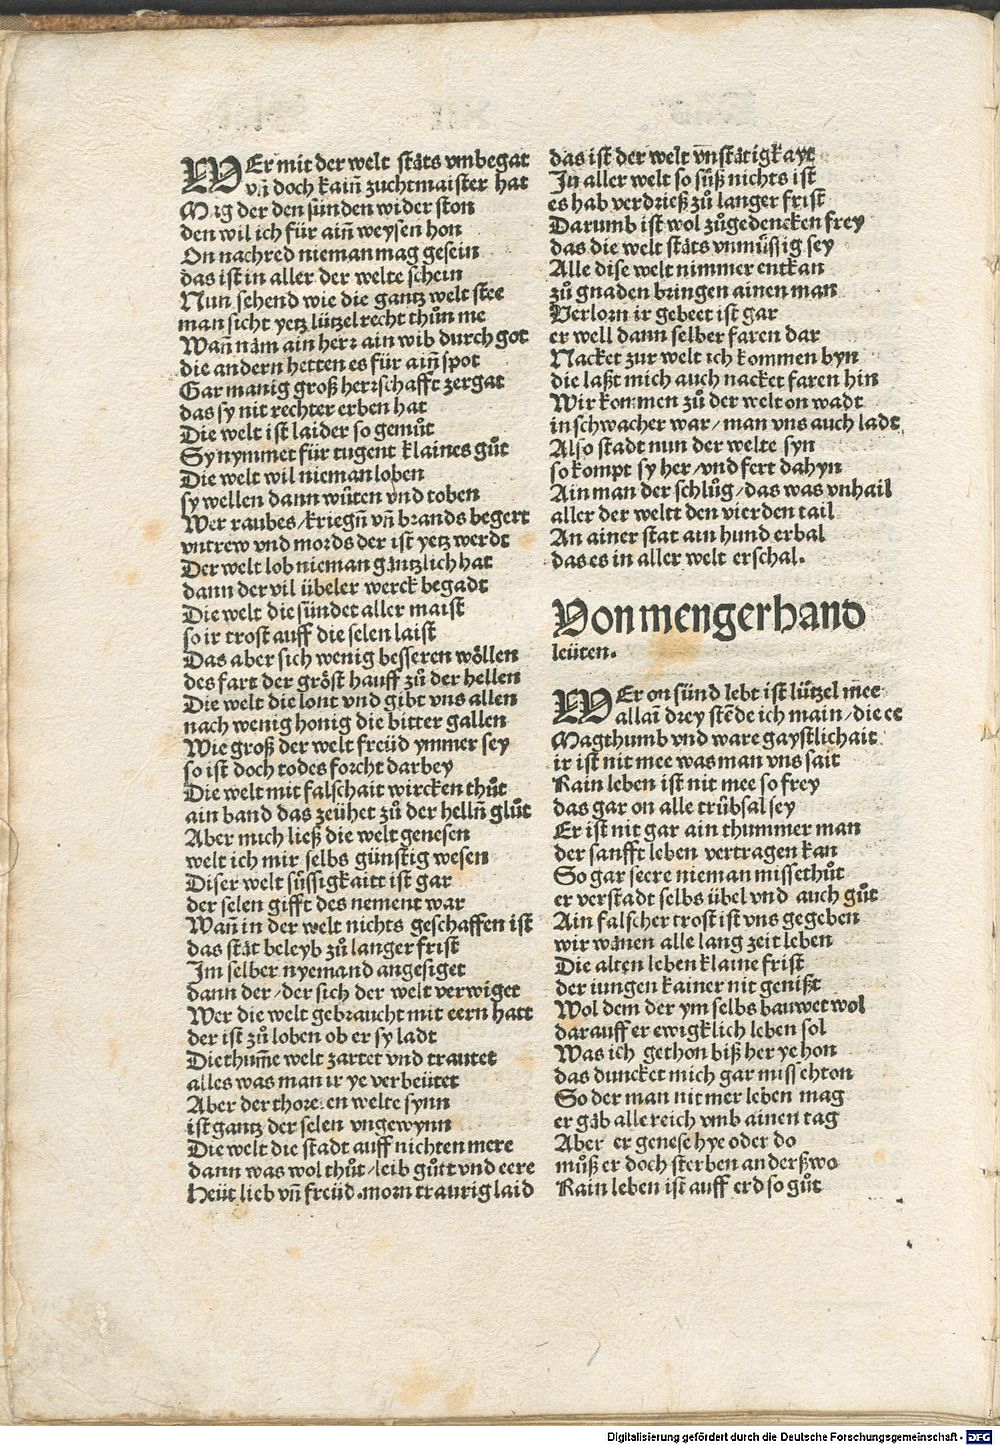 WEr mit der welt stäts vmbegat
vñ doch kaiñ zuchtmaister hat
Mag der den sünden wider ston
den wil ich für aiñ weysen hon
On nachred nieman mag gesein
das ist in aller der welte schein
Nun sehend wie die gantz welt stee
man sicht yetz lützel recht thůn me
Wañ näm ain herr ain wib durch got
die andern hetten es für aiñ spot
Gar manig groß herrschafft zergat
das sy nit rechter erben hat
Die welt ist laider so gemůt
Sy nymmet für tugent klaines gůt
Die welt wil nieman loben
sy wellen dann wůten vnd toben
Wer raubes/kriegñ vñ brands begert
vntrew vnd mords der ist yetz werdt
Der welt lob nieman gäntzlich hat
dann der vil übeler werck begadt
Die welt die sündet aller maist
so ir trost auff die selen laist
Das aber sich wenig besseren wöllen
des fart der gröst hauff zů der hellen
Die welt die lont vnd gibt vns allen
nach wenig honig die bitter gallen
Wie groß der welt freüd ymmer sey
so ist doch todes forcht darbey
Die welt mit falschait wircken thůt
ain band das zeühet zů der hellñ glůt
Aber mich ließ die welt genesen
welt ich mir selbs günstig wesen
Diser welt süssigkaitt ist gar
der selen gifft des nement war
Wañ in der welt nichts geschaffen ist
das stät beleyb zů langer frist
Im selber nyemand angesiget
dann der/der sich der welt verwiget
Wer die welt gebraucht mit eern hatt
der ist zů loben ob er sy ladt
Die thum̃e welt zartet vnd trautet
alles was man ir ye verbeütet
Aber der thoreten welte synn
ist gantz der selen vngewynn
Die welt die stadt auff nichten mere
dann was wol thůt/leib gůtt vnd eere
Heüt lieb vñ freüd.morn traurig laid
das ist der welt vñstätigkayt
In aller welt so süß nichts ist
es hab verdrieß zů langer frist
Darumb ist wol zůgedencken frey
das die welt stäts vnmüssig sey
Alle dise welt nimmer entkan
zů gnaden bringen ainen man
Verlorn ir gebeet ist gar
er well dann selber faren dar
Nacket zur welt ich kommen byn
die laßt mich auch nacket faren hin
Wir kommen zů der welt on wadt
in schwacher war/man vns auch ladt
Also stadt nun der welte syn
so kompt sy her/vnd fert dahyn
Ain man der schlůg/das was vnhail
aller der weltt den vierden tail
An ainer stat ain hund erbal
das es in aller welt erschal.
Von mengerhand
leüten.
WEr on sünd lebt ist lützel mẽe
allaĩ drey stẽde ich main/die ee
Magthumb vnd ware gaystlichait
ir ist nit mee was man vns sait
Kain leben ist nit mee so frey
das gar on alle trübsal sey
Er ist nit gar ain thummer man
der sanfft leben vertragen kan
So gar seere nieman missethůt
er verstadt selbs übel vnd auch gůt
Ain falscher trost ist vns gegeben
wir wänen alle lang zeit leben
Die alten leben klaine frist
der iungen kainer nit genißt
Wol dem der ym selbs bauwet wol
darauff er ewigklich leben sol
Was ich gethon biß her ye hon
das duncket mich gar miss ehton
So der man nit mer leben mag
er gäb alle reich vmb ainen tag
Aber er genese hye oder do
můß er doch sterben anderßwo
Kain leben ist auff erd so gůt
Digitalisierung gefördert durch die Deutsche Forschungsgemeinschaft - DFG